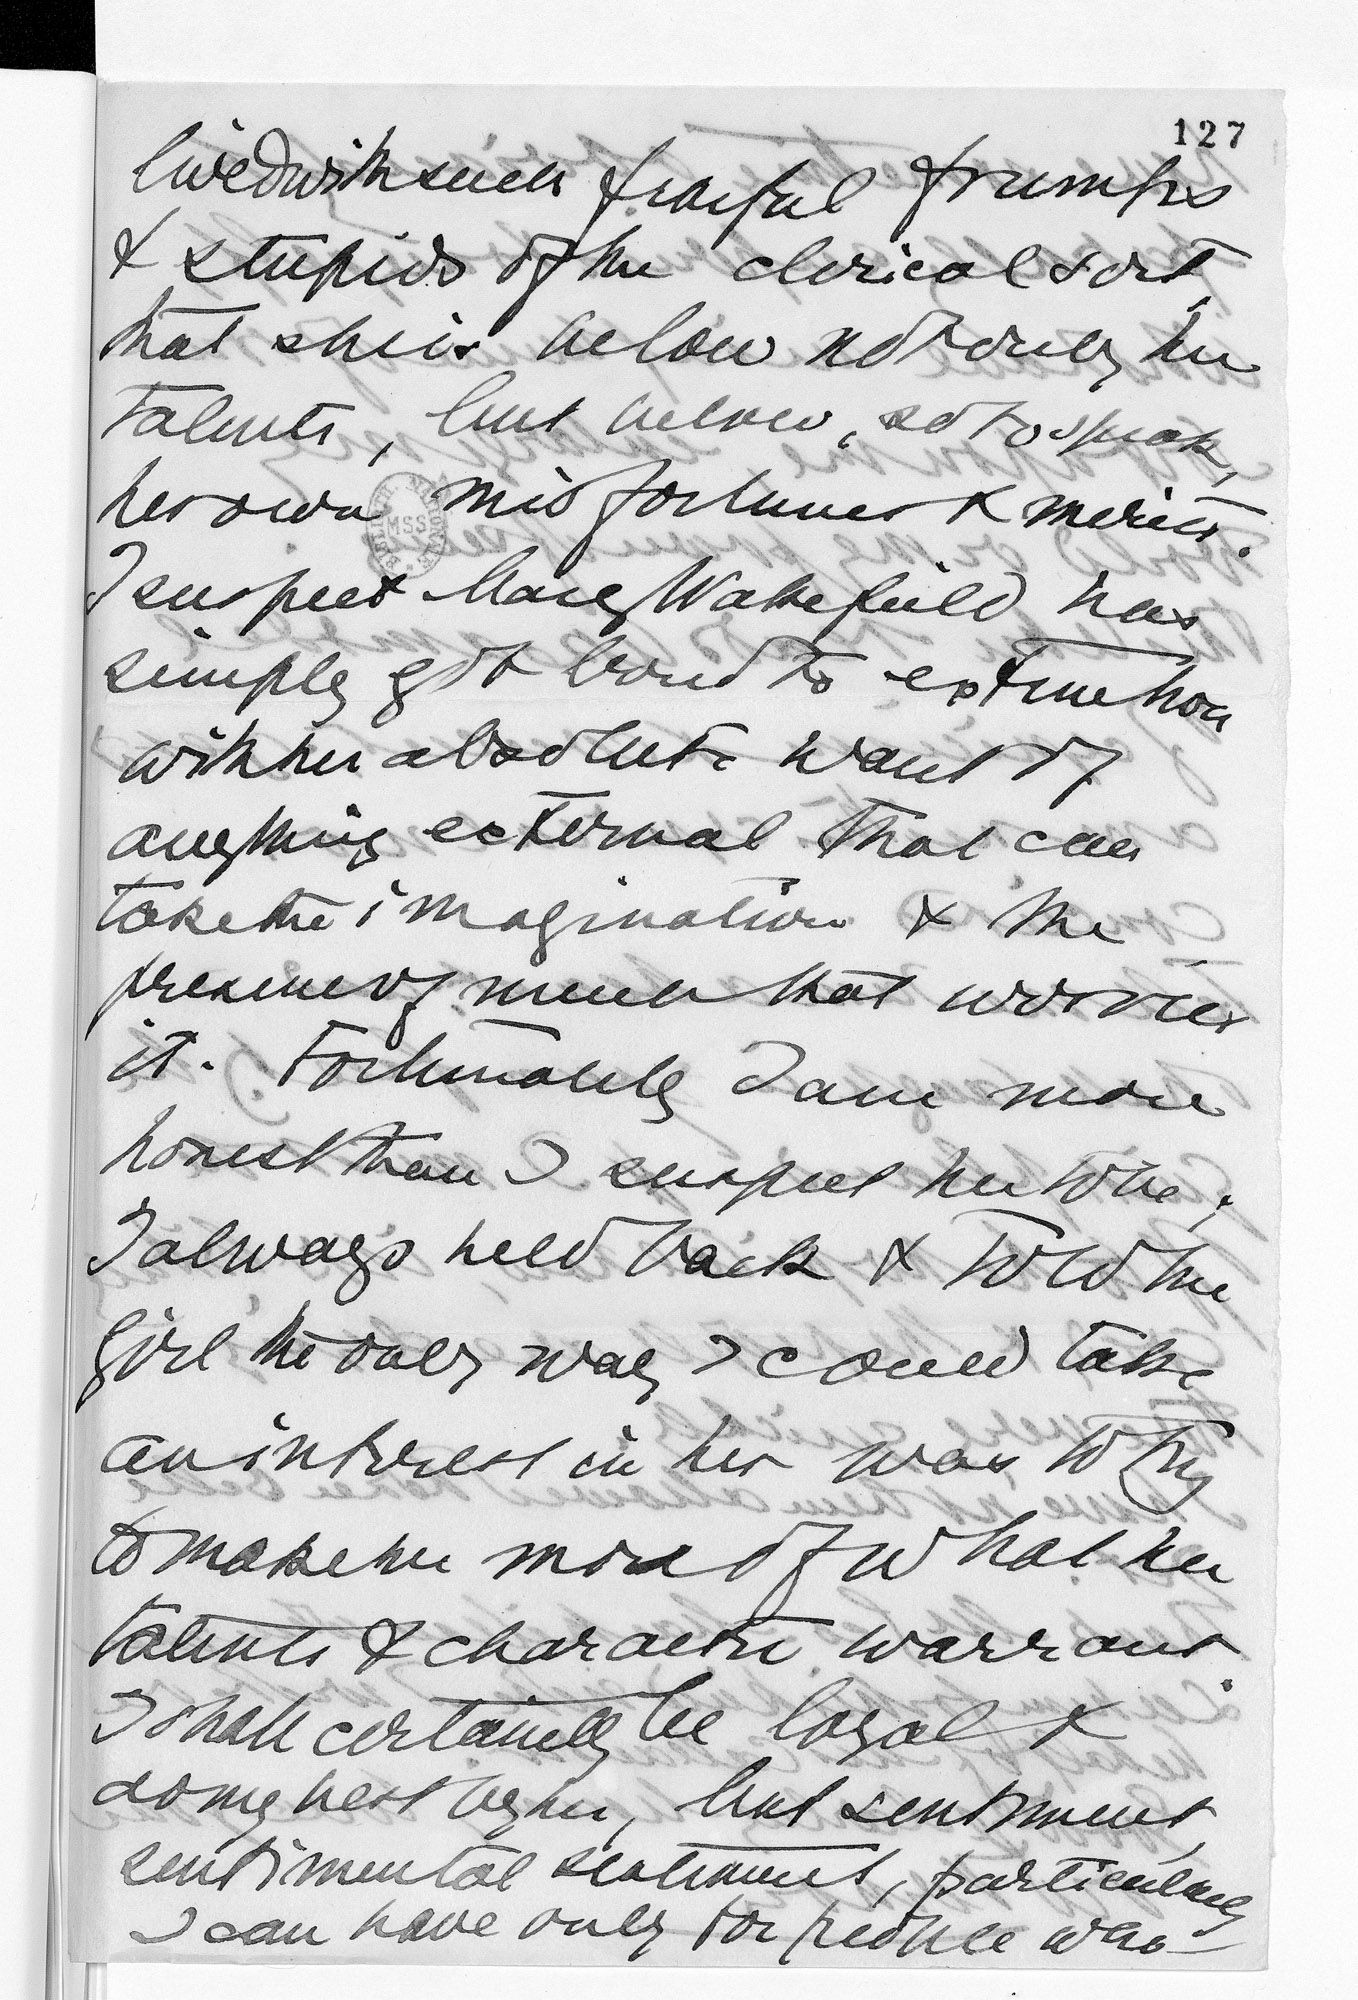 127
lived with such fearful frumps
& stupids of the clerical sort,
that she is below not only her
talents, but below, so to speak,
her own misfortunes & merits.
I suspect Mary Wakefield has
simply got bored to extinction
with her absolute want of
anything external that can
take the imagination & the
presence of much that worries
it. Fortunately I am more
honest than I suspect her to be;
I always held back & told the
girl the only way I could take
an interest in her was to try
to make her more of what her
talents & character warrant.
I shall certainly be loyal &
do my best by her, but sentiment,
sentimental sentiment, particularly
I can have only for people who